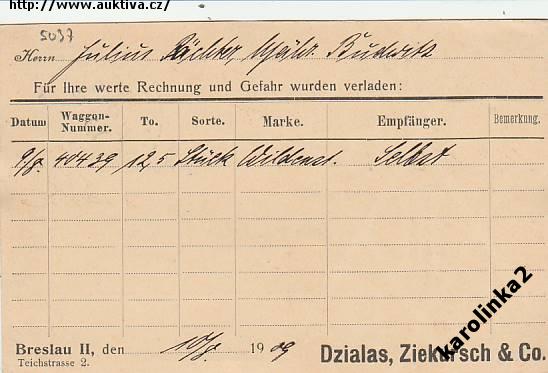 http://www.auktiva.cz/
5037
Herrn Julius Pächter, Mähr. Budwitz
Für Ihre werte Rechnung und Gefahr wurden verladen:
Datum Waggon-Nummer. To. Sorte. Marke. Empfänger. Bemerkung.
9/8. 40439 12,5 Stück Wildenst. Selbst
karolinka2
Breslau II, den 10/8. 1909 Dzialas, Ziekursch & Co.
Teichstrasse 2.